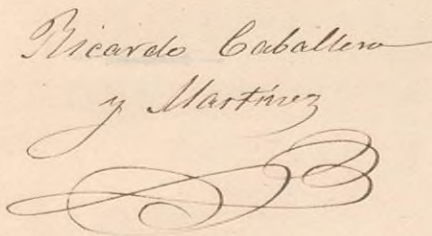 Ricardo Caballero
y Martínez